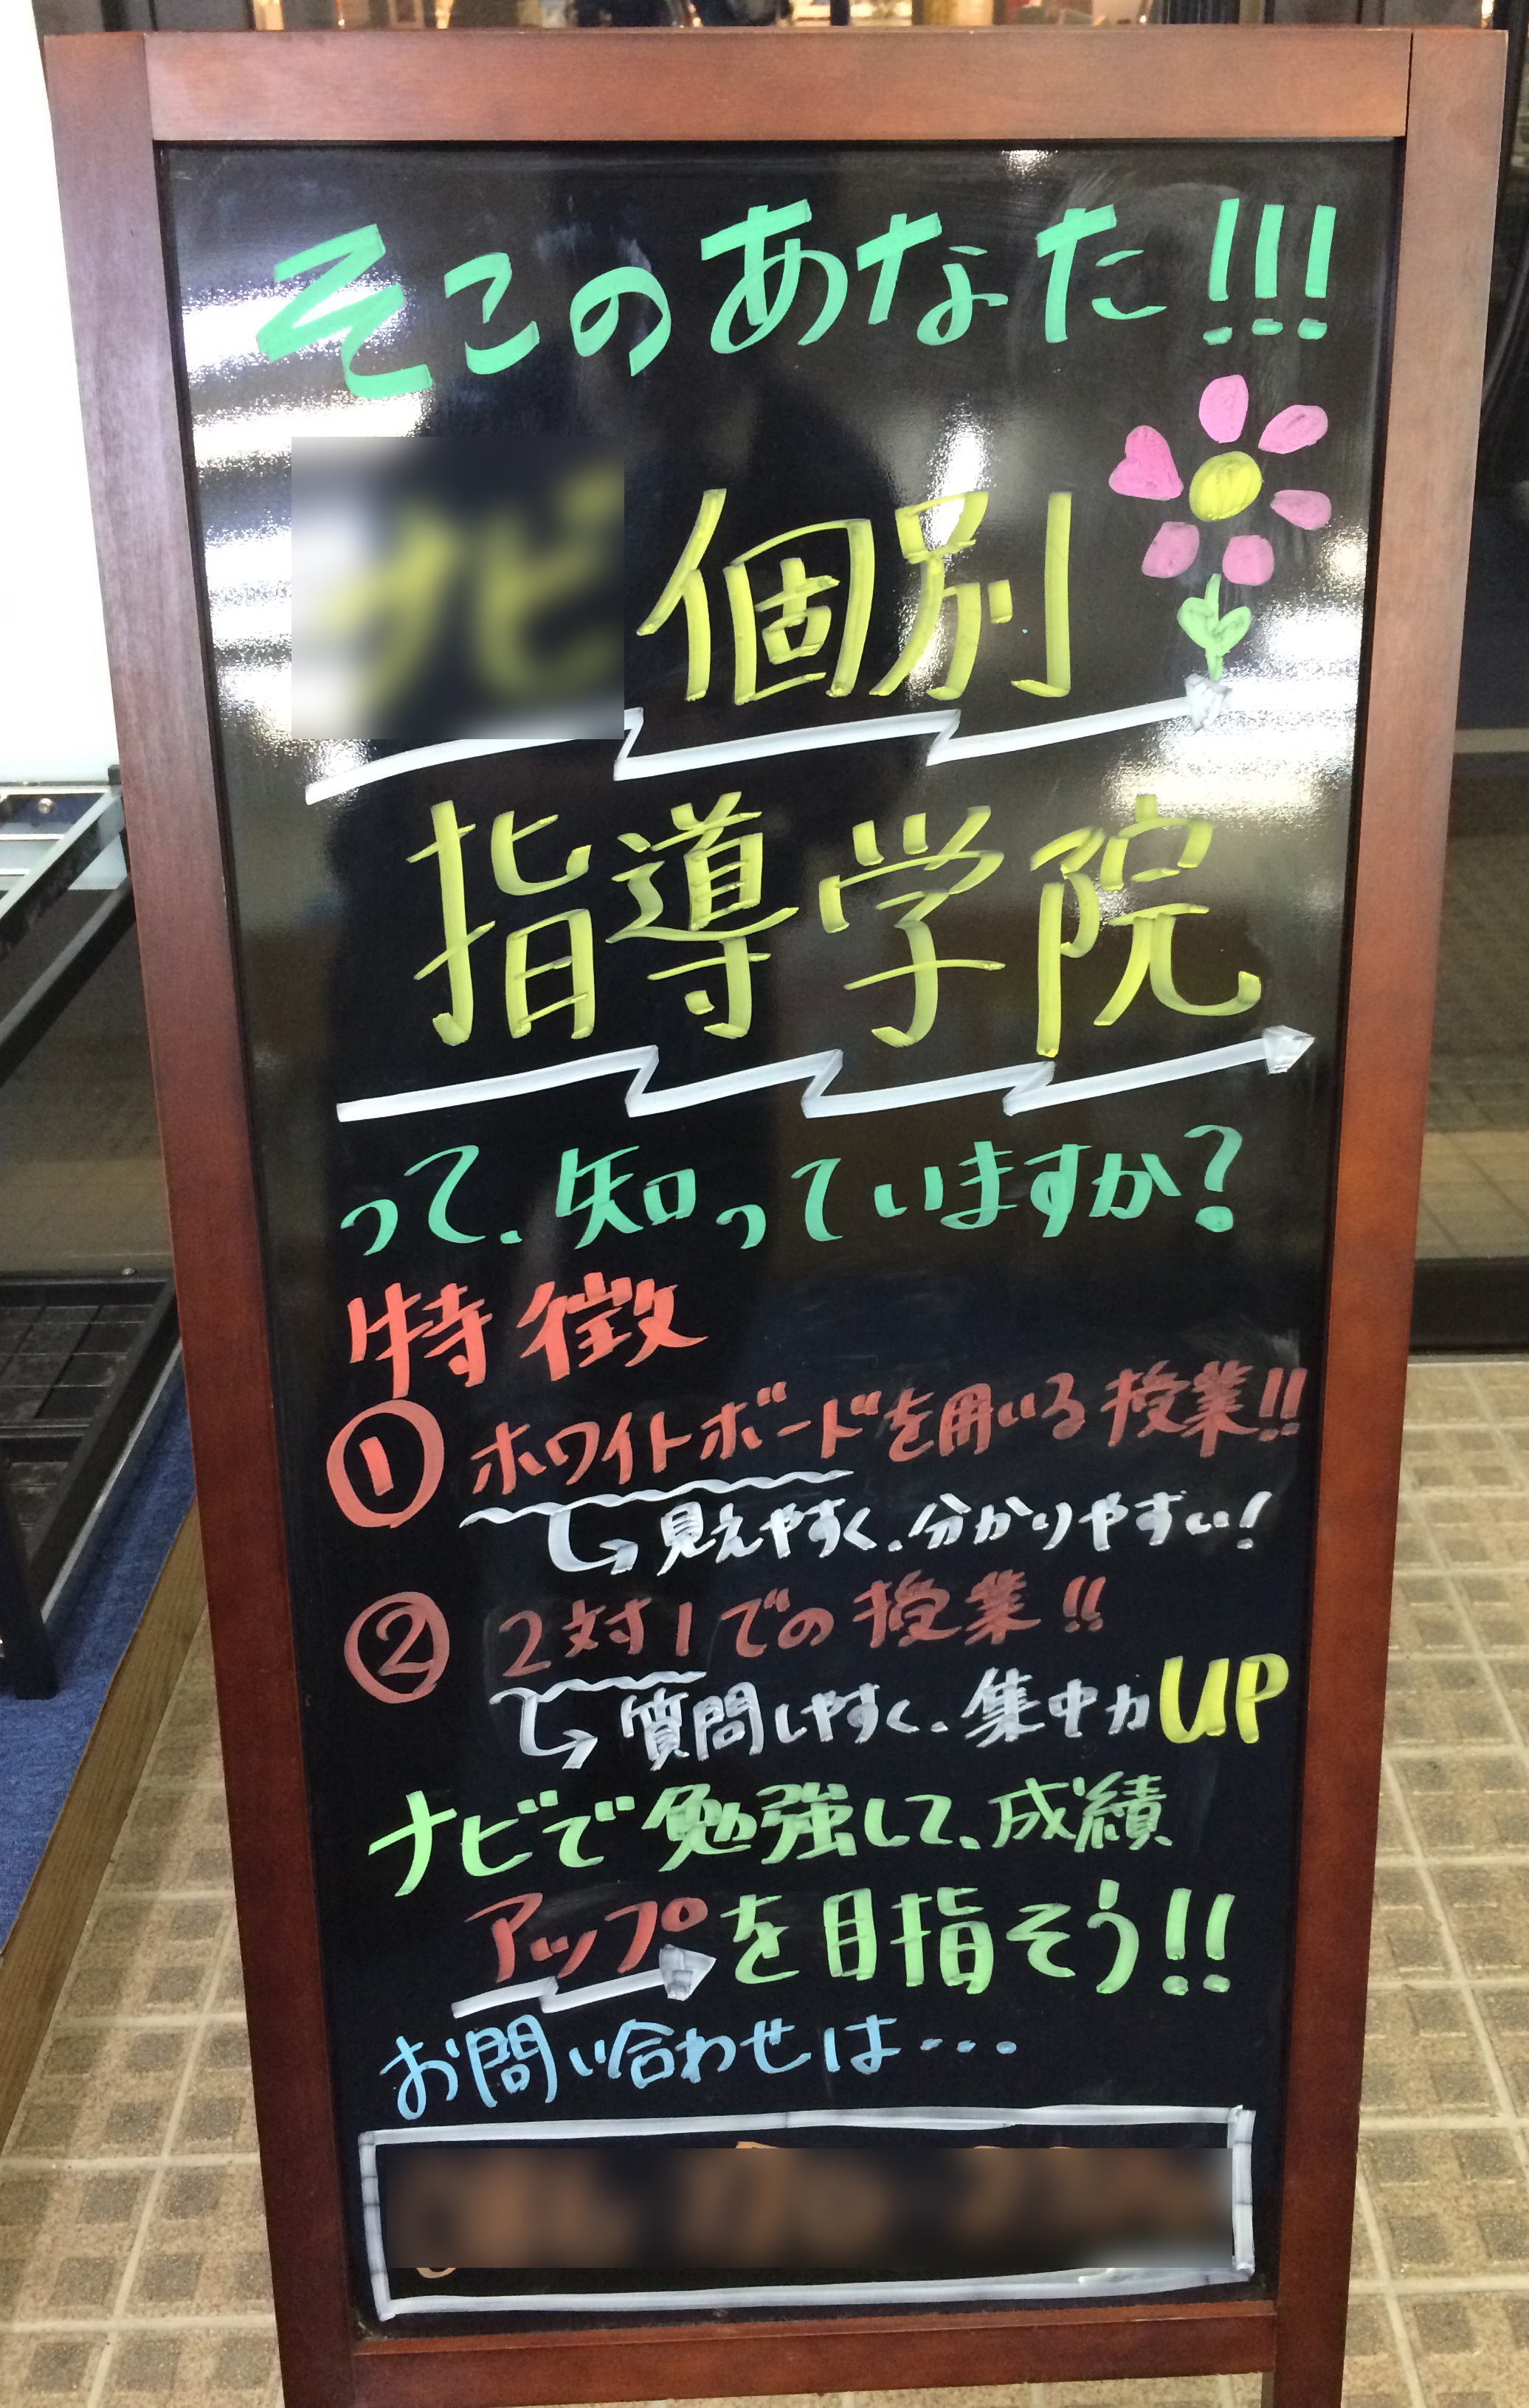 そこのあなた!!!
個別
指導学院
って、知っていますか?
特徴
① ホワイトボードを用いる授業!!
見えやすく、分かりやすい!
② 2対1での授業!!
質問しやすく、集中力UP
ナビで勉強して、成績
アップを目指そう!!
お問い合わせは・・・